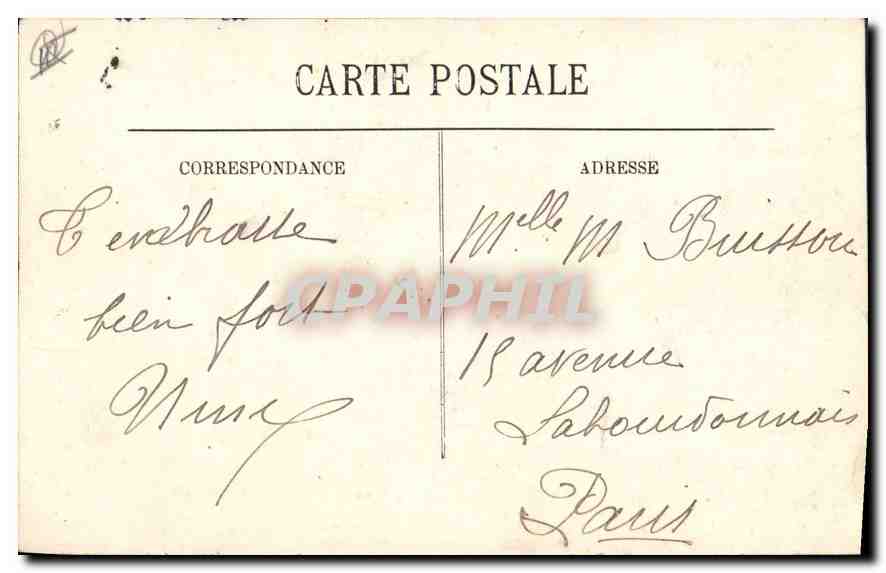 CARTE POSTALE
CORRESPONDANCE
T'embrasse
bien fort
ADRESSE
Melle M Buisson
15 avenue
Labourdonnais
Paris
CPAPHIL